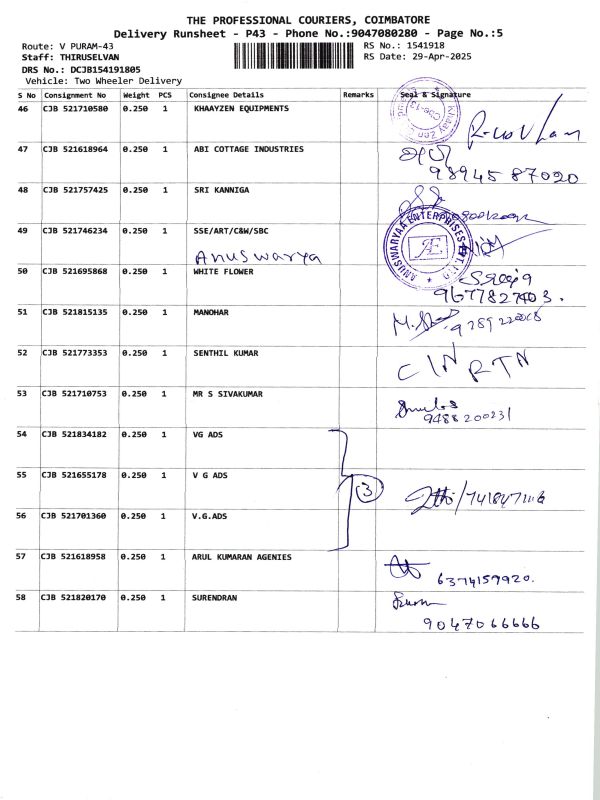 THE PROFESSIONAL COURIERS, COIMBATORE
Delivery Runsheet - P43 - Phone No.:9047080280 - Page No.:5
Route: V PURAM-43 RS No.: 1541918
Staff: THIRUSELVAN RS Date: 29-Apr-2025
DRS No.: DCJB154191805
Vehicle: Two Wheeler Delivery
S No Consignment No Weight PCS Consignee Details Remarks Seal & Signature
46 CJB 521710580 0.250 1 KHAAYZEN EQUIPMENTS
47 CJB 521618964 0.250 1 ABI COTTAGE INDUSTRIES
98945 87020
48 CJB 521757425 0.250 1 SRI KANNIGA
49 CJB 521746234 0.250 1 SSE/ART/C&W/SBC
Anuswarya
ANUSWARYAA ENTERPRISES PVT. LTD
AE
50 CJB 521695868 0.250 1 WHITE FLOWER
9677827403.
51 CJB 521815135 0.250 1 MANOHAR
52 CJB 521773353 0.250 1 SENTHIL KUMAR
53 CJB 521710753 0.250 1 MR S SIVAKUMAR
9488200231
54 CJB 521834182 0.250 1 VG ADS
55 CJB 521655178 0.250 1 V G ADS
3
56 CJB 521701360 0.250 1 V.G.ADS
57 CJB 521618958 0.250 1 ARUL KUMARAN AGENIES
6374159920.
58 CJB 521820170 0.250 1 SURENDRAN
9047066666